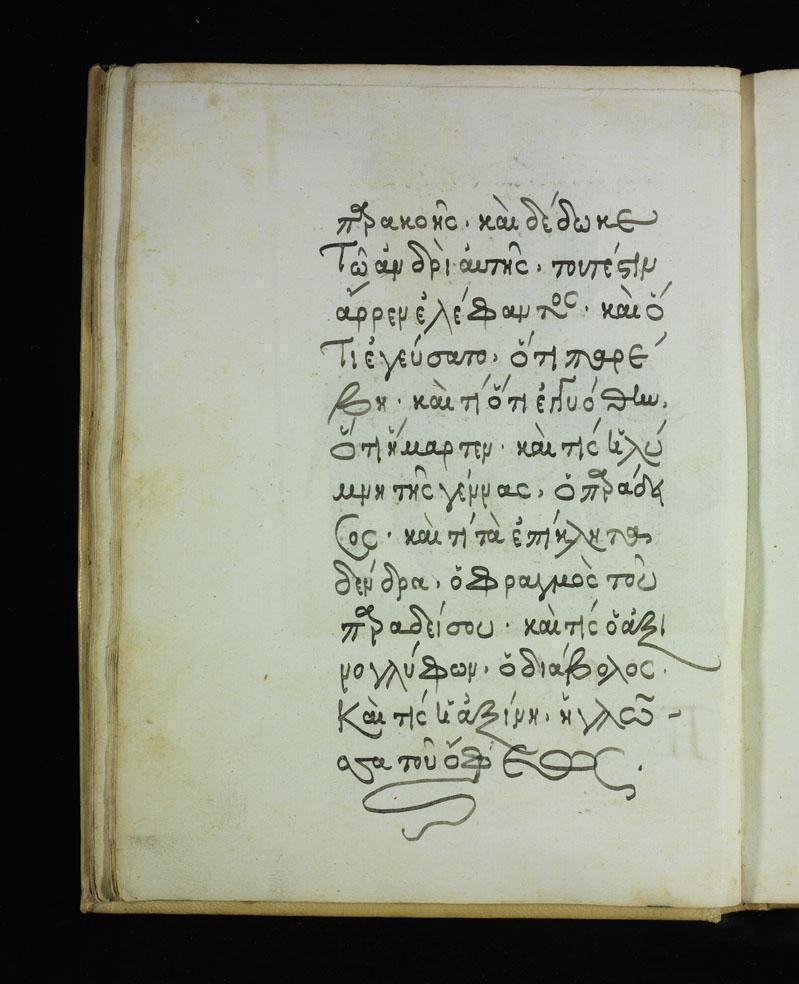 παρακοῆς· καὶ δέδωκε
Τῶ ἀνδρὶ ἀυτῆς, τουτέστιν
ἄρρεν ἐλέφαντος· καὶ ὅ
Τι ἐγεύσατο, ὅτι παρέ
βη· καὶ τί ὅτι
ὅτι ἥμαρτεν· καὶ τίς ἡ λύ
μνη τῆς γέννας, ὁ παράδει
σος· καὶ τί τὰ ἐπήκλητα
δένδρα, ὁ φραγμὸς τοῦ
παραδείσου· καὶ τίς ὁ ἀξι
νογλύφων, ὁ διάβολος.
Καὶ τίς ἡ ἀξίνη, ἡ γλῶ-
σσα τοῦ ὄφεως.